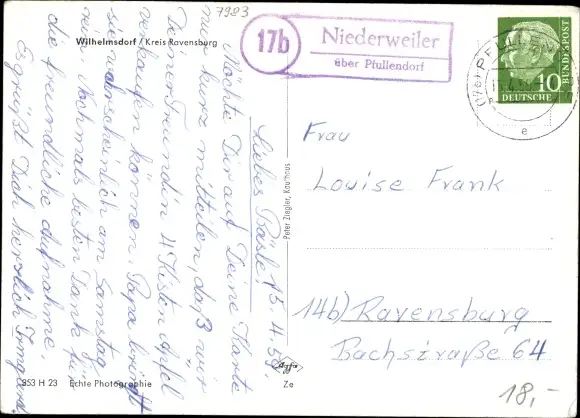 7983
Wilhelmsdorf / Kreis Ravensburg
17b
Niederweiler
über Pfullendorf
DEUTSCHE
BUNDESPOST
10
e
Liebes Bäsle! 15.4.59
Möchte Dir auf Deine Karte
nur kurz mitteilen, daß wir
Deiner Freundin 4 Kisten Äpfel
verkaufen können. Papa bringt
sie wahrscheinlich am Samstag
Nochmals besten Dank für
die freundliche Aufnahme.
Es grüßt Dich herzlich Irmgard
Peter Ziegler, Kaufhaus
Frau
Louise Frank
14b) Ravensburg
Bachstraße 64
353 H 23 Echte Photographie
Agfa
Ze
18,-